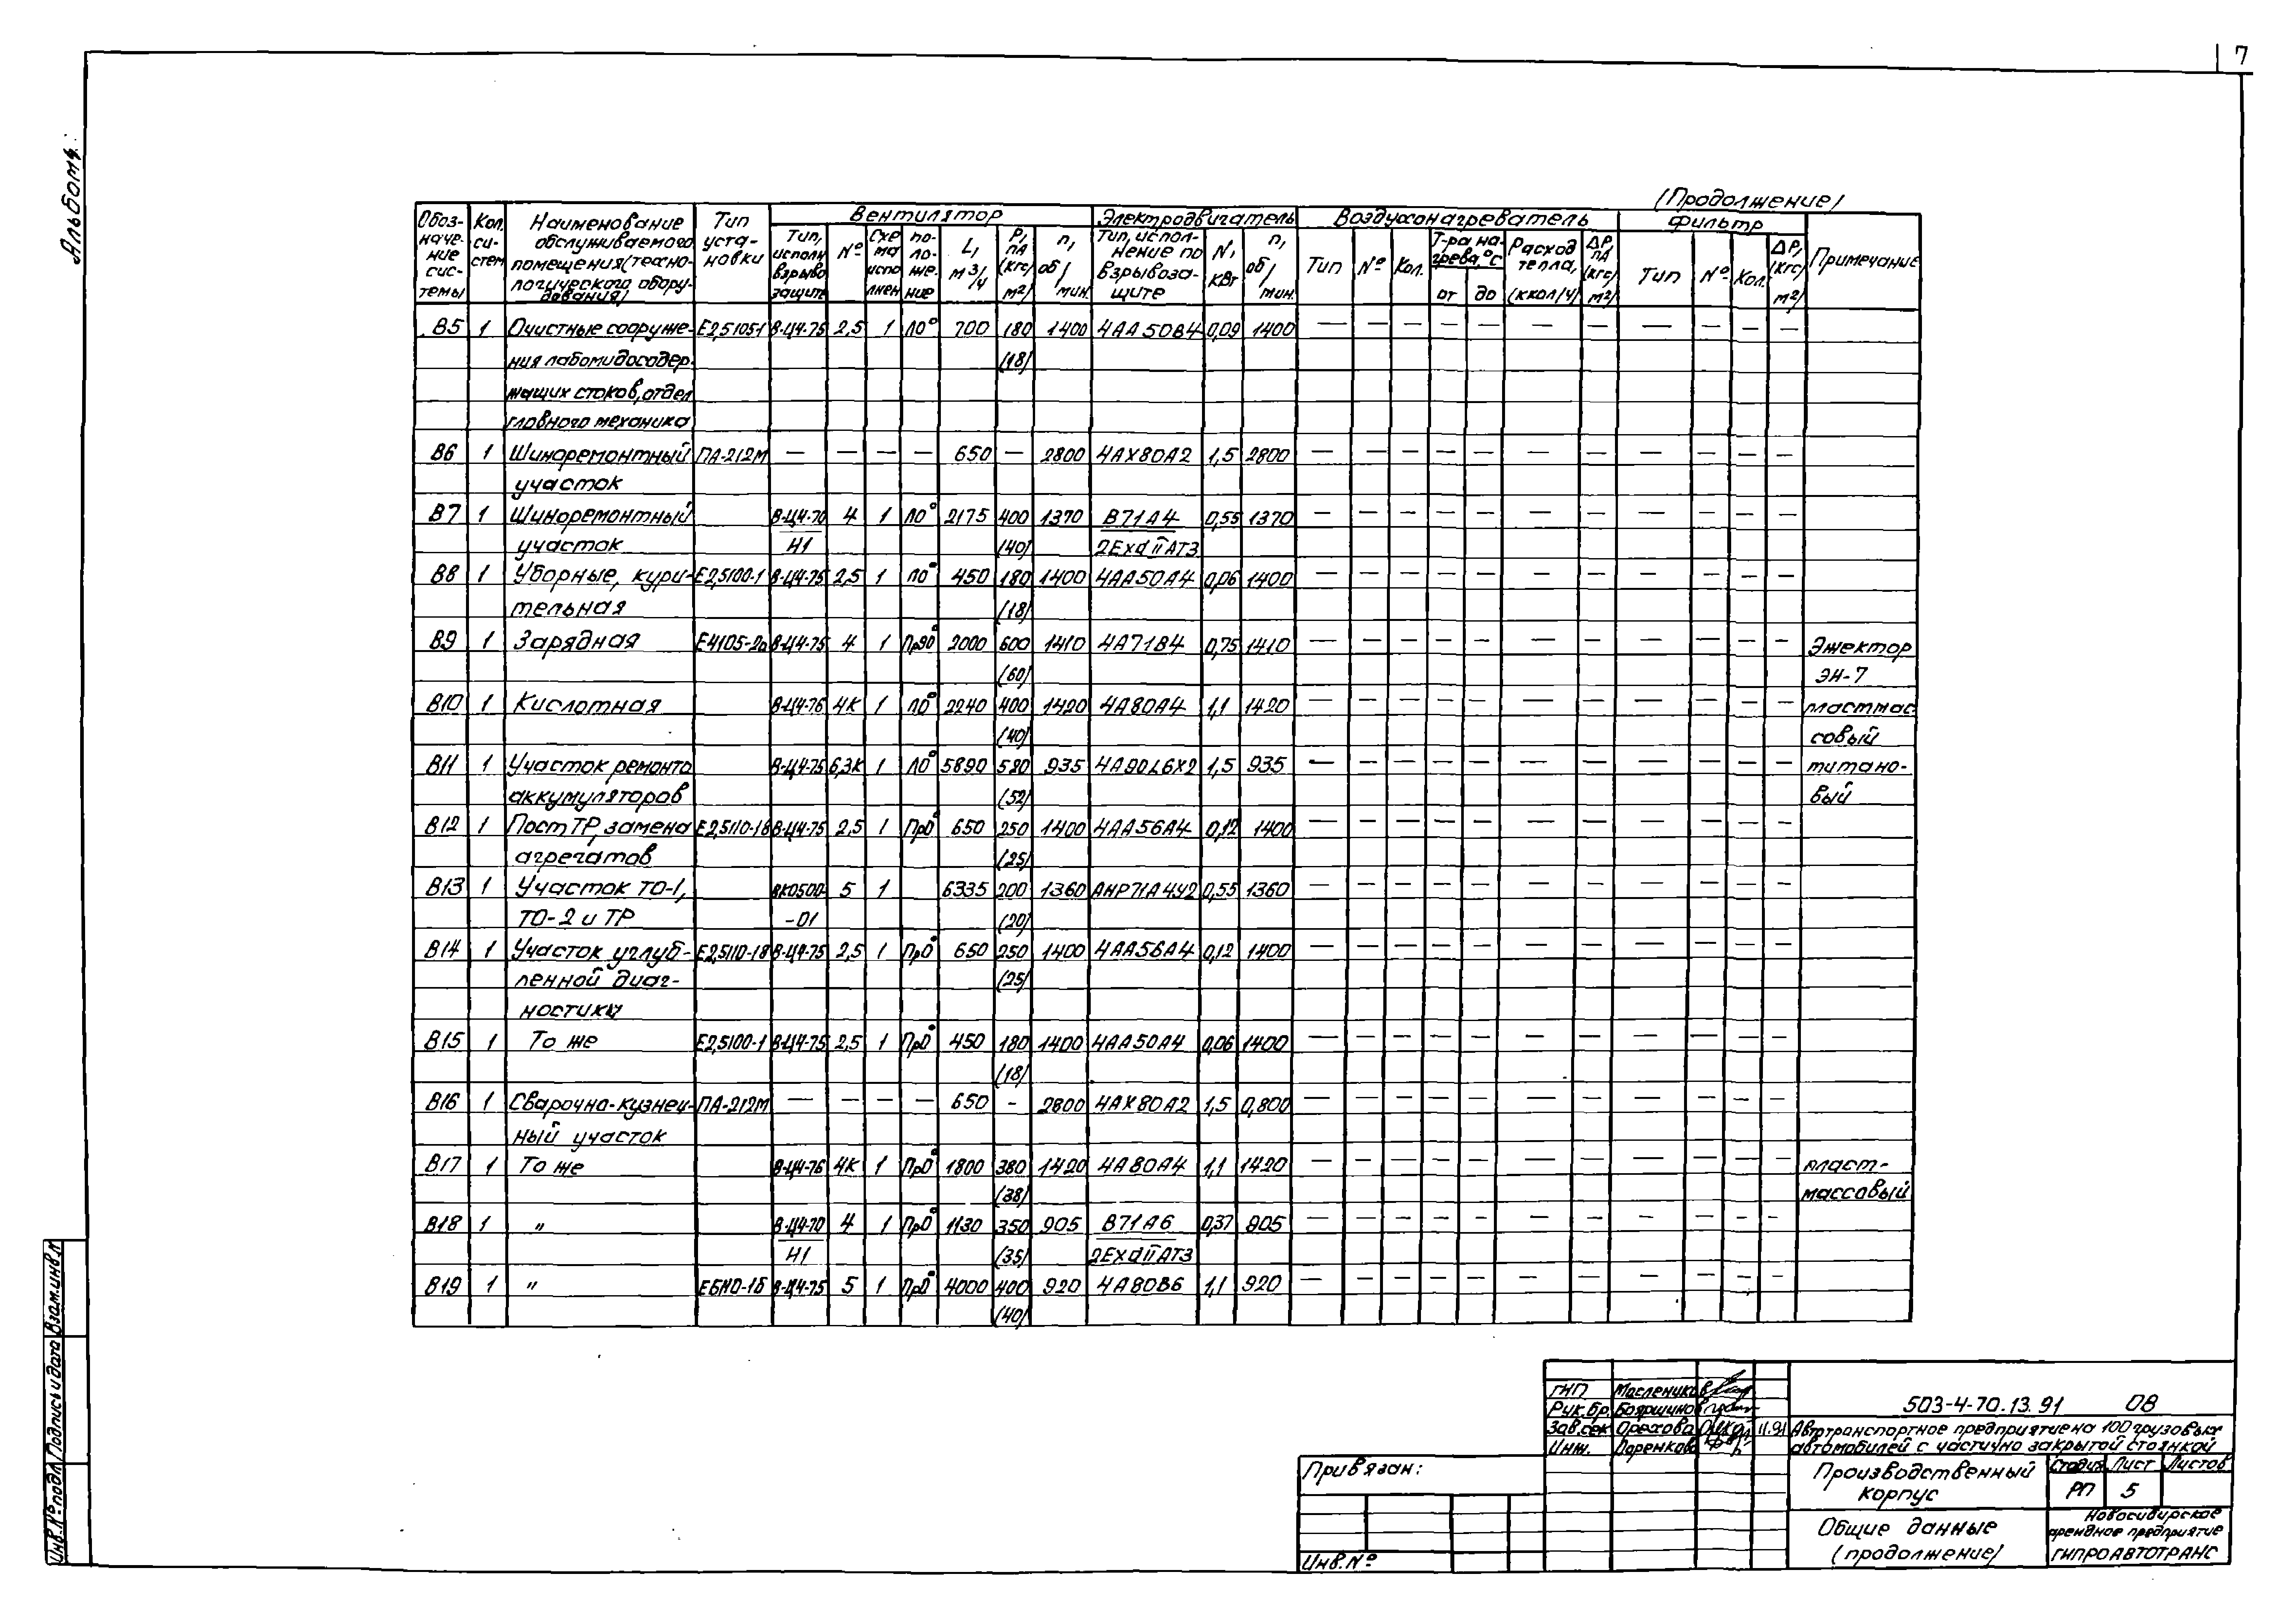 7
Альбом 4
(Продолжение)
Обоз-наче-ние сис-темы | Кол. си-стем | Наименование обслуживаемого помещения (техно-логического обору-дования) | Тип уста-новки | Вентилятор | Электродвигатель | Воздухонагреватель | Фильтр | Примечание
Тип, исполн взрыво защите | № | Схе ма испо лнен | по-ло-же-ние | L, м3/ч | P, ПА (кгс/м2) | n, об/мин. | Тип, испол-нение по взрывоза-щите | N, кВт | n, об/мин. | Тип | № | Кол. | Т-ра на-грева, °С от до | Расход тепла, (ккал/ч) | ΔР, ПА (кгс/м2) | Тип | № | Кол. | ΔР, (кгс/м2)
В5 1 Очистные сооруже- Е2,5105-1 В-Ц4-75 2,5 1 Л0° 700 180 1400 4АА50В4 0,09 1400 — — — — — — — — — — —
ния лабомидосодер- (18)
жащих стоков, отдел
главного механика
В6 1 Шиноремонтный ПА-212М — — — — 650 — 2800 4АХ80А2 1,5 2800 — — — — — — — — — — —
участок
В7 1 Шиноремонтный В-Ц4-70 4 1 Л0° 2175 400 1370 В71А4 0,55 1370 — — — — — — — — — — —
участок И1 (40) 2ЕхdIIАТ3
В8 1 Уборные, кури- Е2,5100-1 В-Ц4-75 2,5 1 Л0° 450 180 1400 4АА50А4 0,06 1400 — — — — — — — — — — —
тельная (18)
В9 1 Зарядная Е4105-2а В-Ц4-75 4 1 Пр90° 2000 600 1410 4А71В4 0,75 1410 — — — — — — — — — — — Эжектор
(60) ЭН-7
В10 1 Кислотная В-Ц4-76 4К 1 Л0° 2240 400 1420 4А80А4 1,1 1420 — — — — — — — — — — — пластмас
(40) совый
В11 1 Участок ремонта В-Ц4-75 6,3К 1 Л0° 5890 520 935 4А90L6У2 1,5 935 — — — — — — — — — — — титано-
аккумуляторов (52) вый
В12 1 Пост ТР, замена Е2,5110-1б В-Ц4-75 2,5 1 Пр0° 650 250 1400 4АА56А4 0,12 1400 — — — — — — — — — — —
агрегатов (25)
В13 1 Участок ТО-1, ВКО500- 5 1 6335 200 1360 АИР71А4У2 0,55 1360 — — — — — — — — — — —
ТО-2 и ТР -01 (20)
В14 1 Участок углуб- Е2,5110-1б В-Ц4-75 2,5 1 Пр0° 650 250 1400 4АА56А4 0,12 1400 — — — — — — — — — — —
ленной диаг- (25)
ностики
В15 1 То же Е2,5100-1 В-Ц4-75 2,5 1 Пр0° 450 180 1400 4АА50А4 0,06 1400 — — — — — — — — — — —
(18)
В16 1 Сварочно-кузнеч- ПА-212М — — — — 650 - 2800 4АХ80А2 1,5 0,800 — — — — — — — — — — —
ный участок
В17 1 То же В-Ц4-76 4К 1 Пр0° 1800 380 1420 4А80А4 1,1 1420 — — — — — — — — — — — пласт-
(38) массовый
В18 1 " В-Ц4-70 4 1 Пр0° 1130 350 905 В71А6 0,37 905 — — — — — — — — — — —
И1 (35) 2ЕхdIIАТ3
В19 1 " Е5110-1б В-Ц4-75 5 1 Пр0° 4000 400 920 4А80В6 1,1 920 — — — — — — — — — — —
(40)
Инв.№ подл. Подпись и дата Взам.инв.№
ГИП Маслеников
Рук.бр. Бояршинов
Зав.сек Орехова 11.91
Инж. Доренкова
503-4-70.13.91 ОВ
Автотранспортное предприятие на 100 грузовых
автомобилей с частично закрытой стоянкой
Привязан:
Инв.№
Производственный корпус
Стадия Лист Листов
РП 5
Общие данные
(продолжение)
Новосибирское
арендное предприятие
ГИПРОАВТОТРАНС